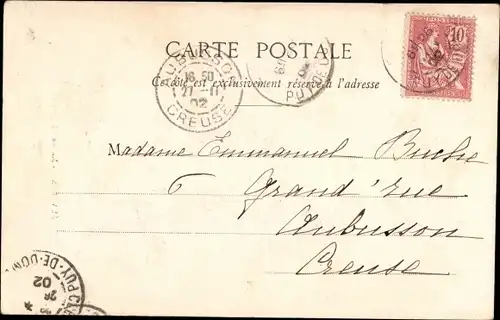 CARTE POSTALE
Ce côté est exclusivement réservé à l'adresse
AUBUSSON
18 30
27-11
02
CREUSE
POSTALE
10
Madame Emmanuel
6 Grand'rue
Aubusson
Creuse
PUY-DE-DOM
02